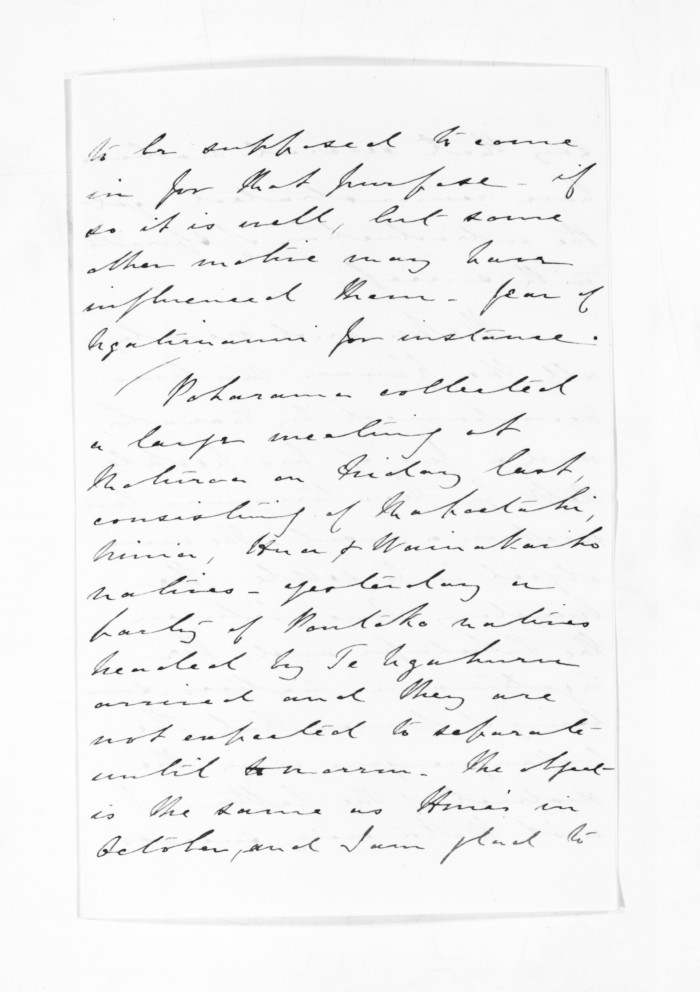 to be supposed to come
in for that purpose - if
so it is well, but some
other motive may have
influenced them - fear of
Ngatiruanui for instance.
Poharama collected
a large meeting at
Moturoa on Friday last,
consisting of
Ninia, Hua & Waiwakaiho
natives - yesterday a
party of Poutoko natives
headed by Te Ngahuru
arrived and they are
not expected to separate
until tomorrow. The object
is the same as Hone's in
October, and I am glad to